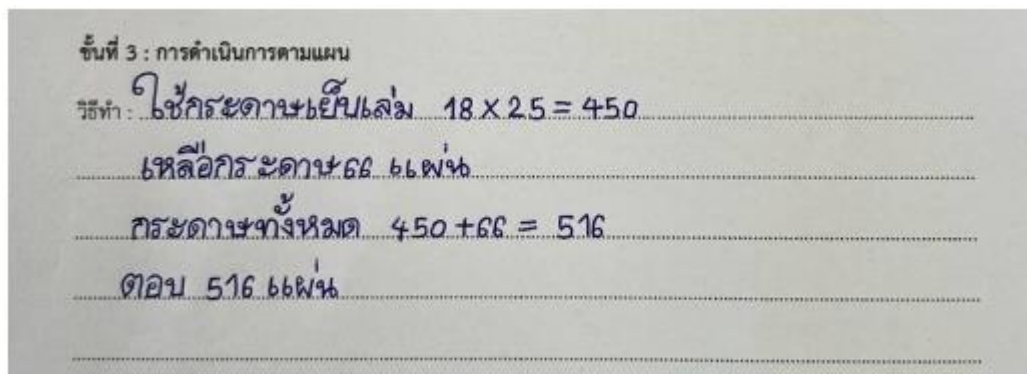 ขั้นที่ 3 : การดำเนินการตามแผน
วิธีทำ : ใช้กระดาษเย็บเล่ม 18 × 25 = 450
เหลือกระดาษ 66 แผ่น
กระดาษทั้งหมด 450 + 66 = 516
ตอบ 516 แผ่น